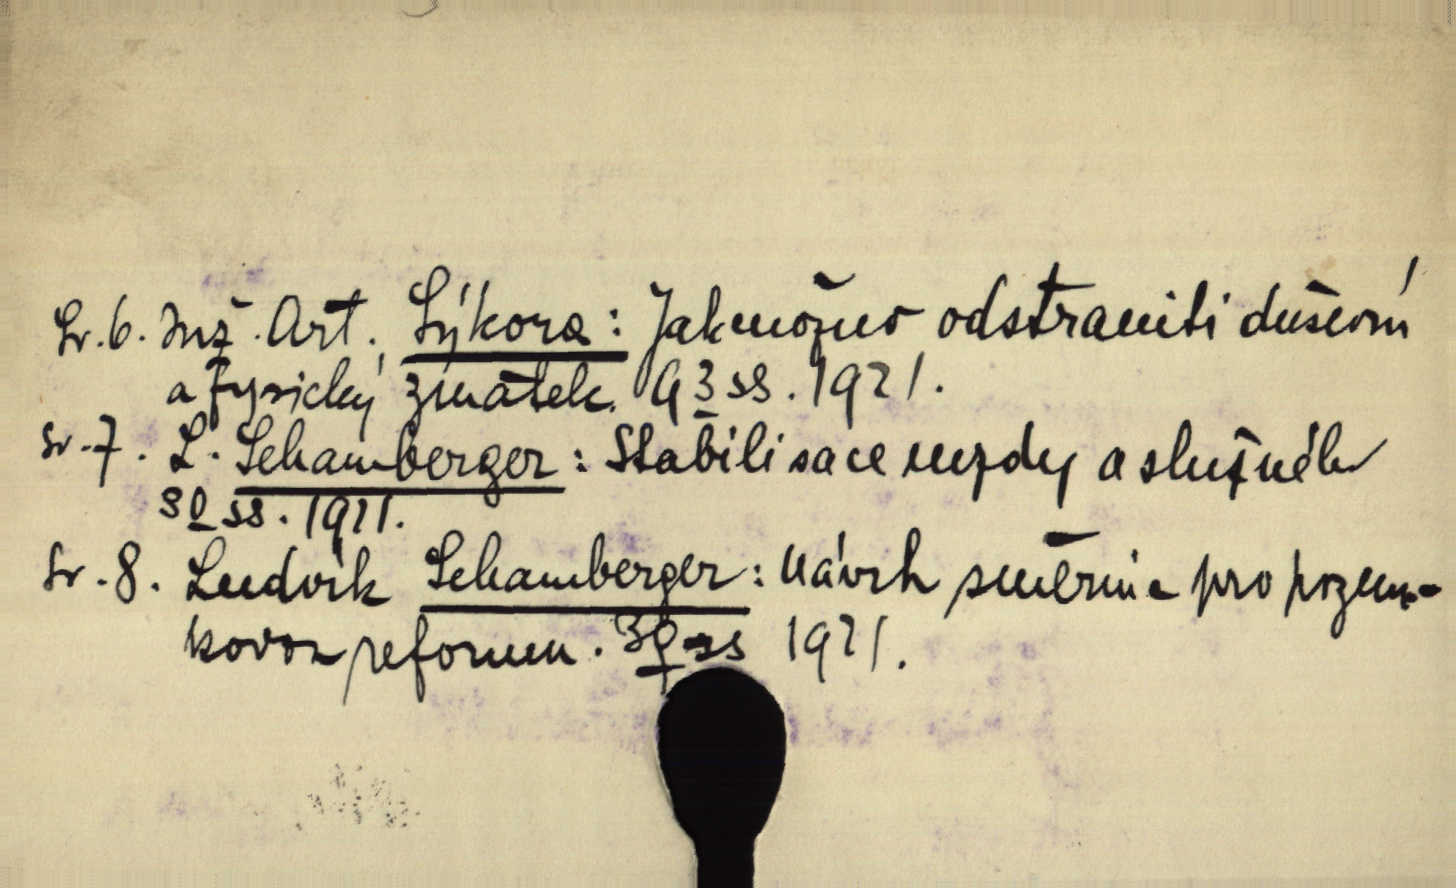 Sv. 6. Inž. Art. Sýkora: Jak možno odstraniti duševní
a fysický zmatek. 93 ss. 1921.
Sv. 7. L. Schamberger: Stabilisace mzdy a služného
80 ss. 1921.
Sv. 8. Ludvík Schamberger: Návrh směrnic pro pozem-
kovou reformu. 39 ss 1921.